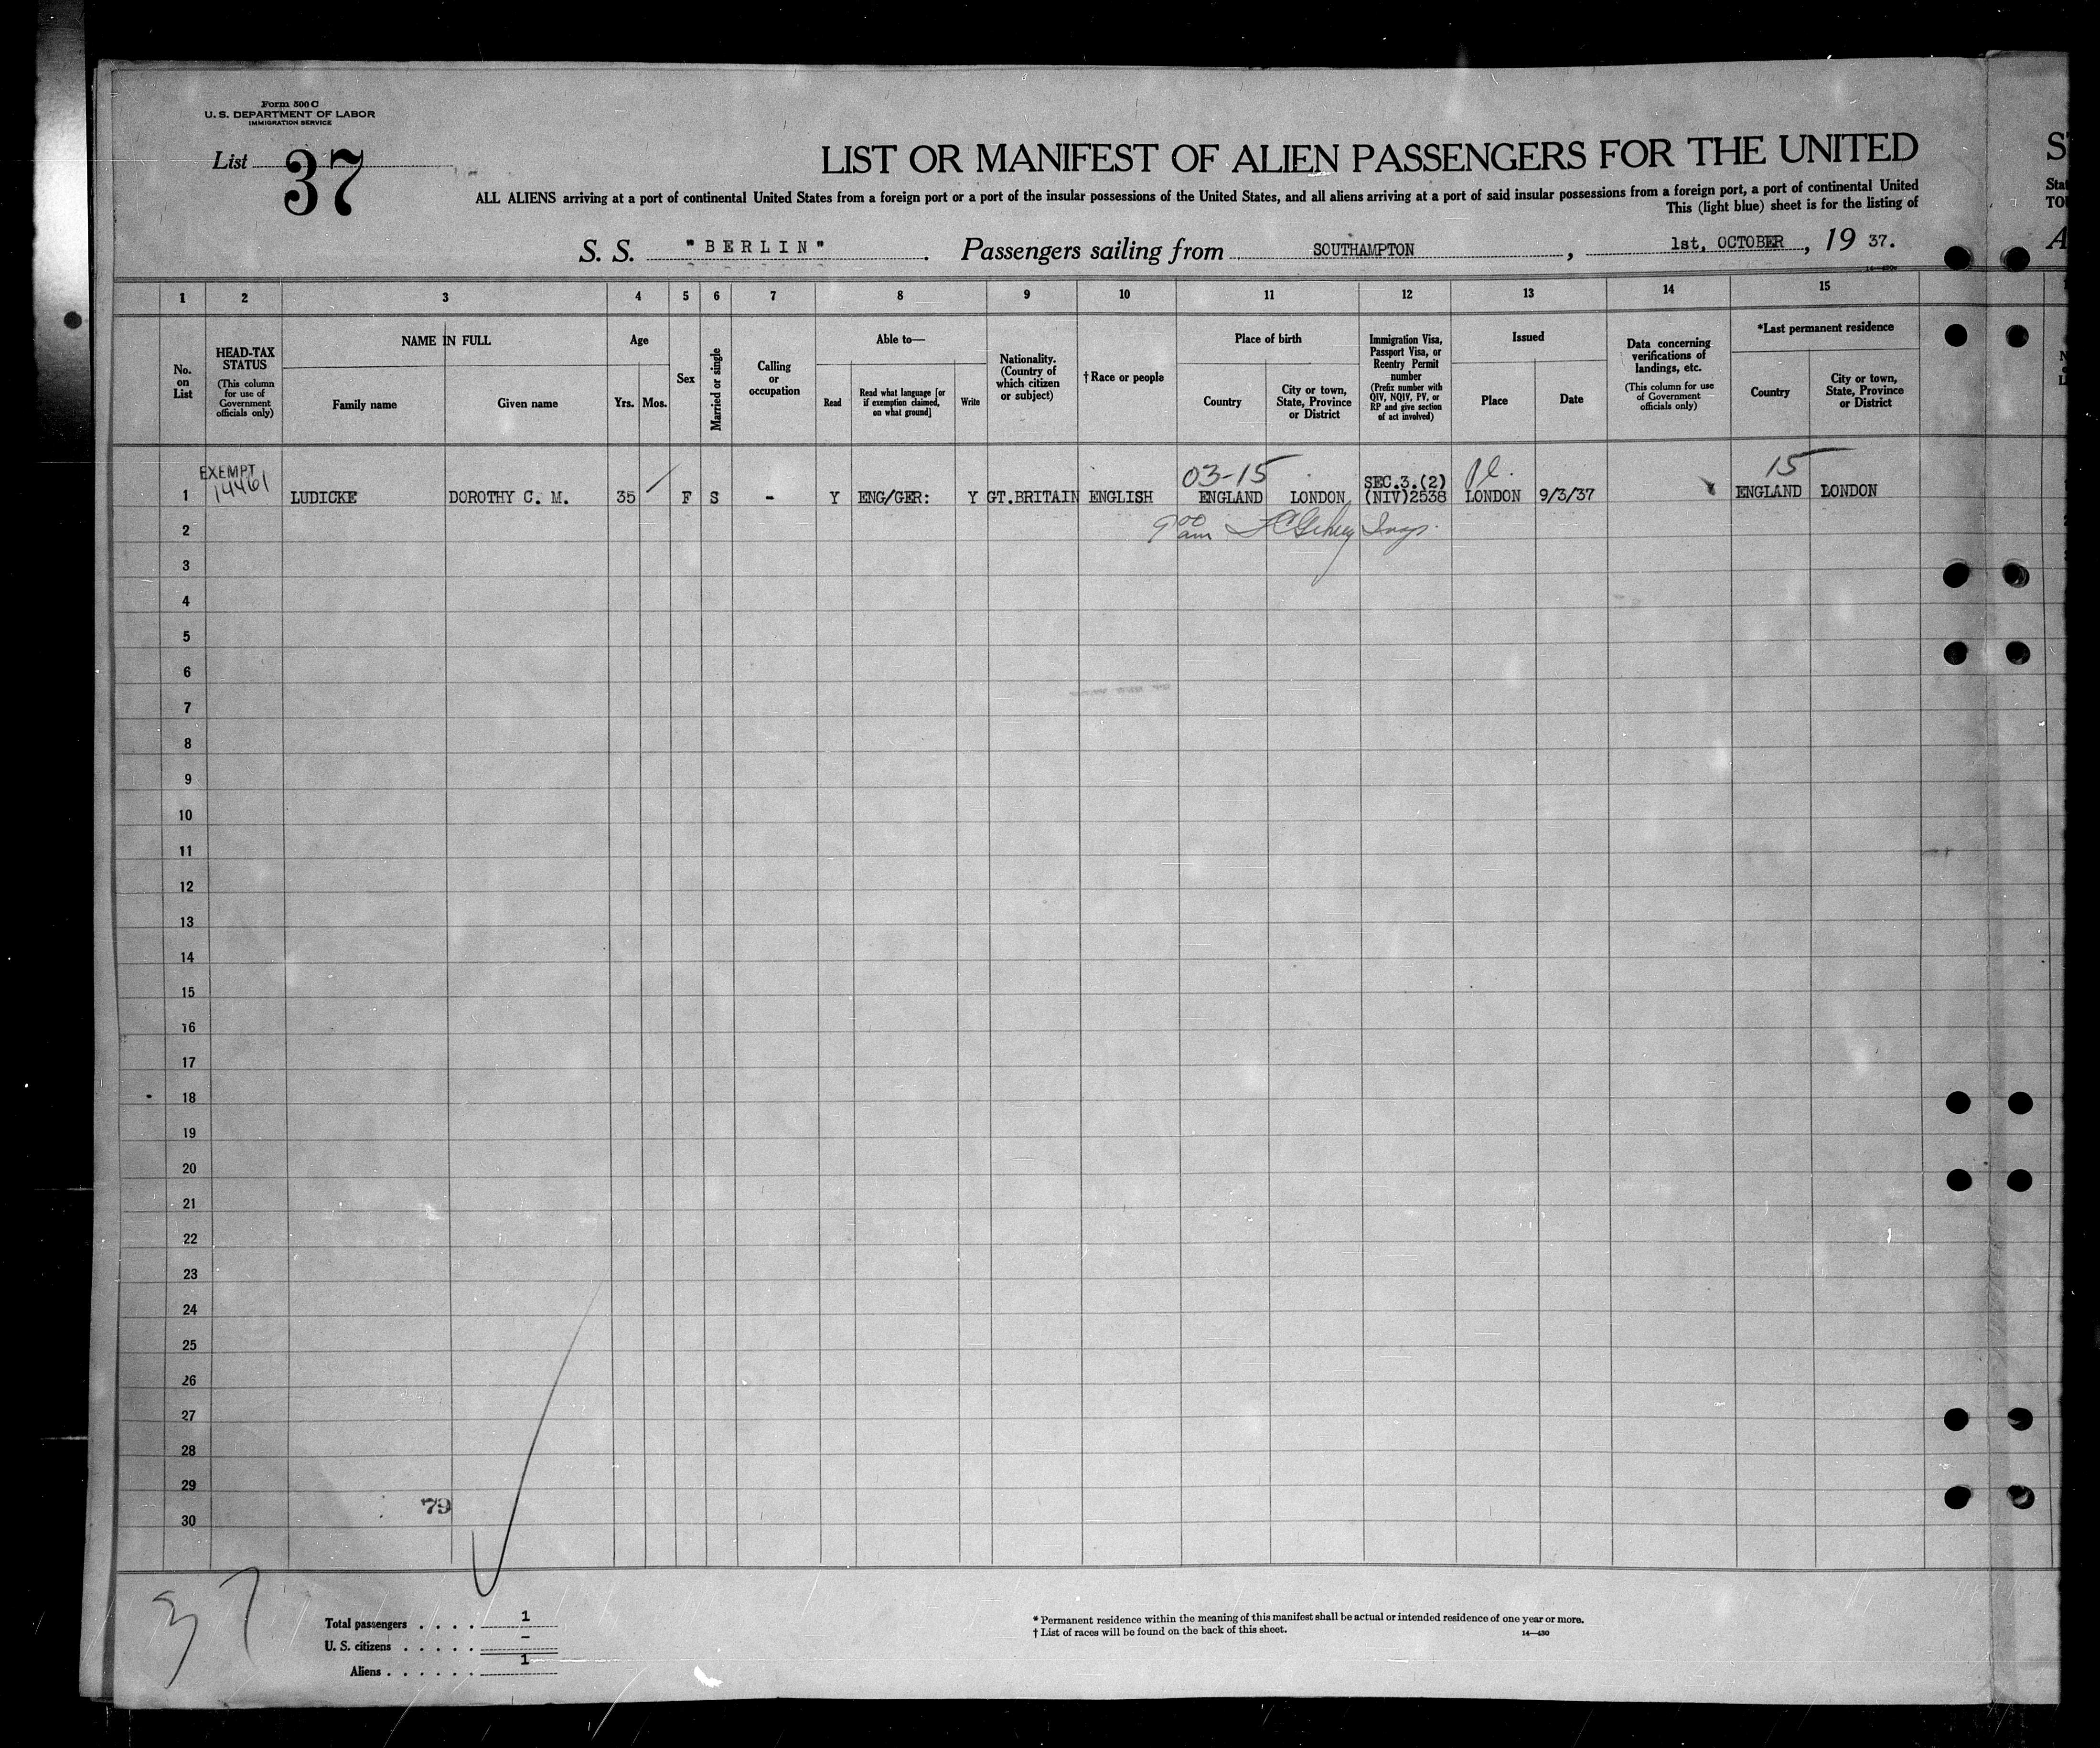 Form 500 C
U. S. DEPARTMENT OF LABOR
IMMIGRATION SERVICE
List 37
LIST OR MANIFEST OF ALIEN PASSENGERS FOR THE UNITED
ALL ALIENS arriving at a port of continental United States from a foreign port or a port of the insular possessions of the United States, and all aliens arriving at a port of said insular possessions from a foreign port, a port of continental United
This (light blue) sheet is for the listing of
S. S. "BERLIN". Passengers sailing from SOUTHAMPTON, 1st, OCTOBER, 19 37.
1 2 3 4 5 6 7 8 9 10 11 12 13 14 15
No. on List
HEAD-TAX STATUS (This column for use of Government officials only)
NAME IN FULL
Family name
Given name
Age
Yrs. Mos.
Sex
Married or single
Calling or occupation
Able to—
Read
Read what language [or if exemption claimed, on what ground]
Write
Nationality. (Country of which citizen or subject)
†Race or people
Place of birth
Country
City or town, State, Province or District
Immigration Visa, Passport Visa, or Reentry Permit number (Prefix number with QIV, NQIV, PV, or RP and give section of act involved)
Issued
Place
Date
Data concerning verifications of landings, etc. (This column for use of Government officials only)
*Last permanent residence
Country
City or town, State, Province or District
EXEMPT 14461
03-15
SEC.3.(2)
15
1 LUDICKE DOROTHY C. M. 35 F S - Y ENG/GER: Y GT.BRITAIN ENGLISH ENGLAND LONDON (NIV)2538 LONDON 9/3/37 ENGLAND LONDON
2 9 00 am
3
4
5
6
7
8
9
10
11
12
13
14
15
16
17
18
19
20
21
22
23
24
25
26
27
28
29
79
30
37
Total passengers . . . . 1
U. S. citizens . . . . . -
Aliens . . . . . . 1
* Permanent residence within the meaning of this manifest shall be actual or intended residence of one year or more.
† List of races will be found on the back of this sheet.
14—430